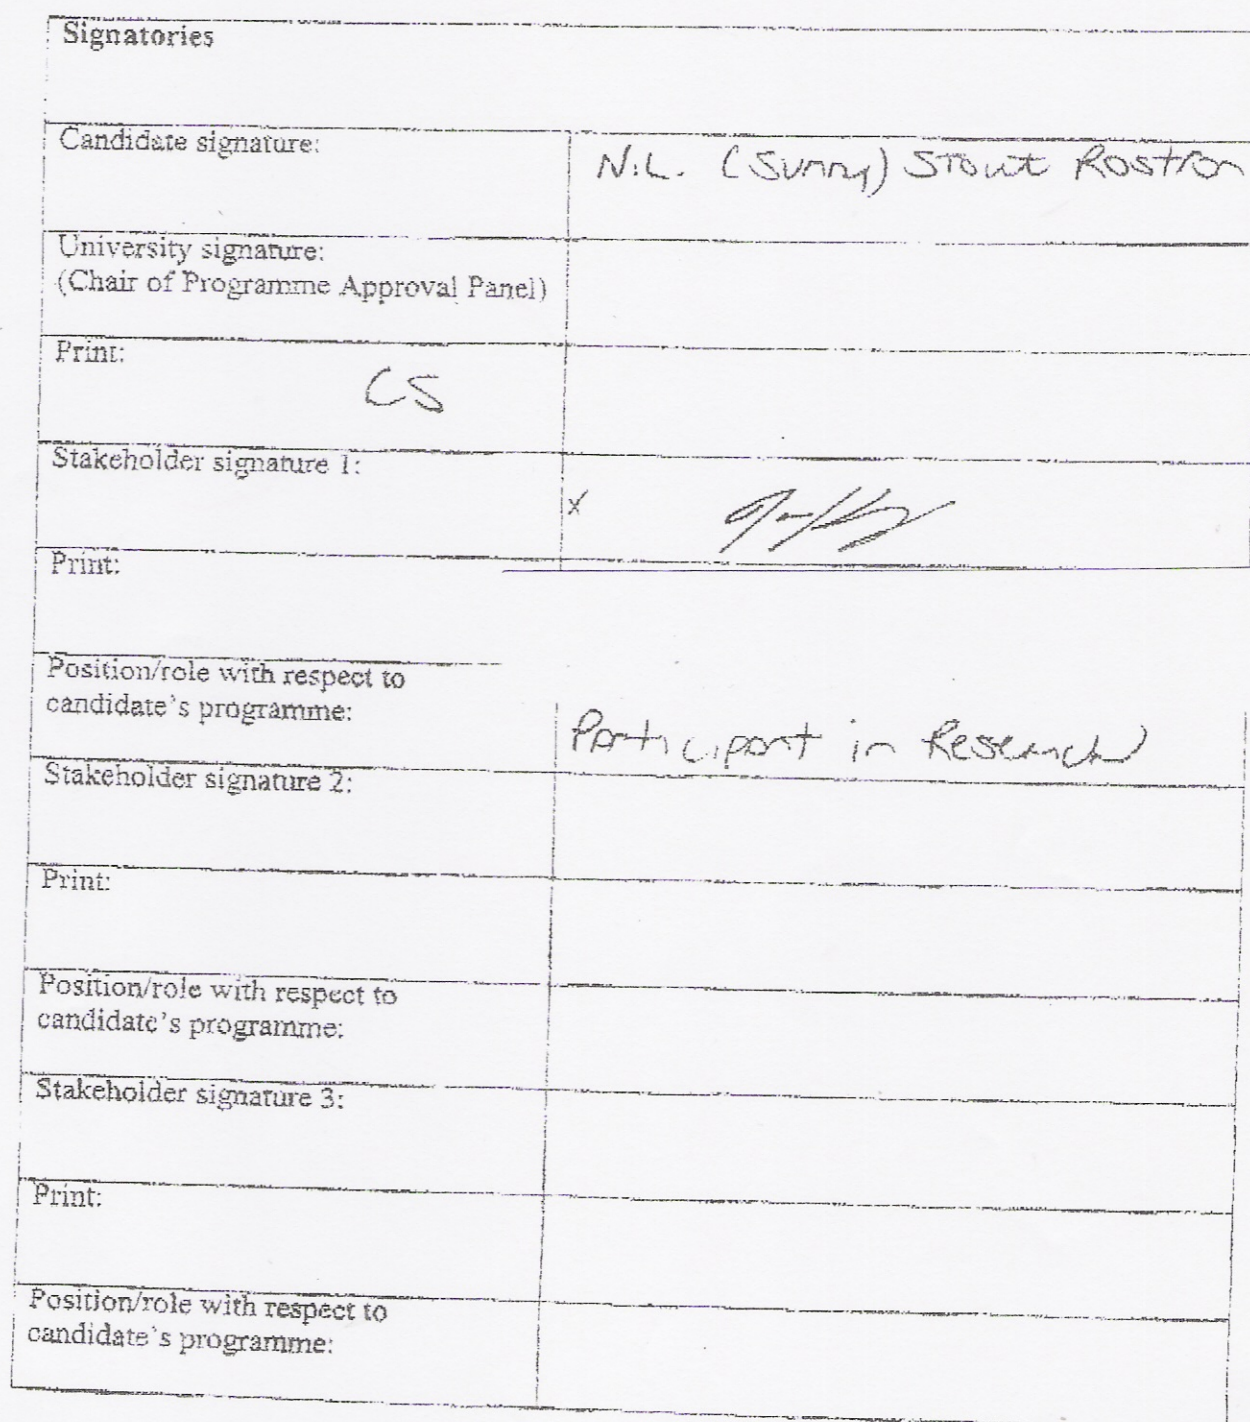 Signatories
Candidate signature:
N.L. (Sunny) Stout Rostron
University signature:
(Chair of Programme Approval Panel)
Print:
CS
Stakeholder signature 1:
x
Print:
Position/role with respect to
candidate's programme:
Participant in Research
Stakeholder signature 2:
Print:
Position/role with respect to
candidate's programme:
Stakeholder signature 3:
Print:
Position/role with respect to
candidate's programme: